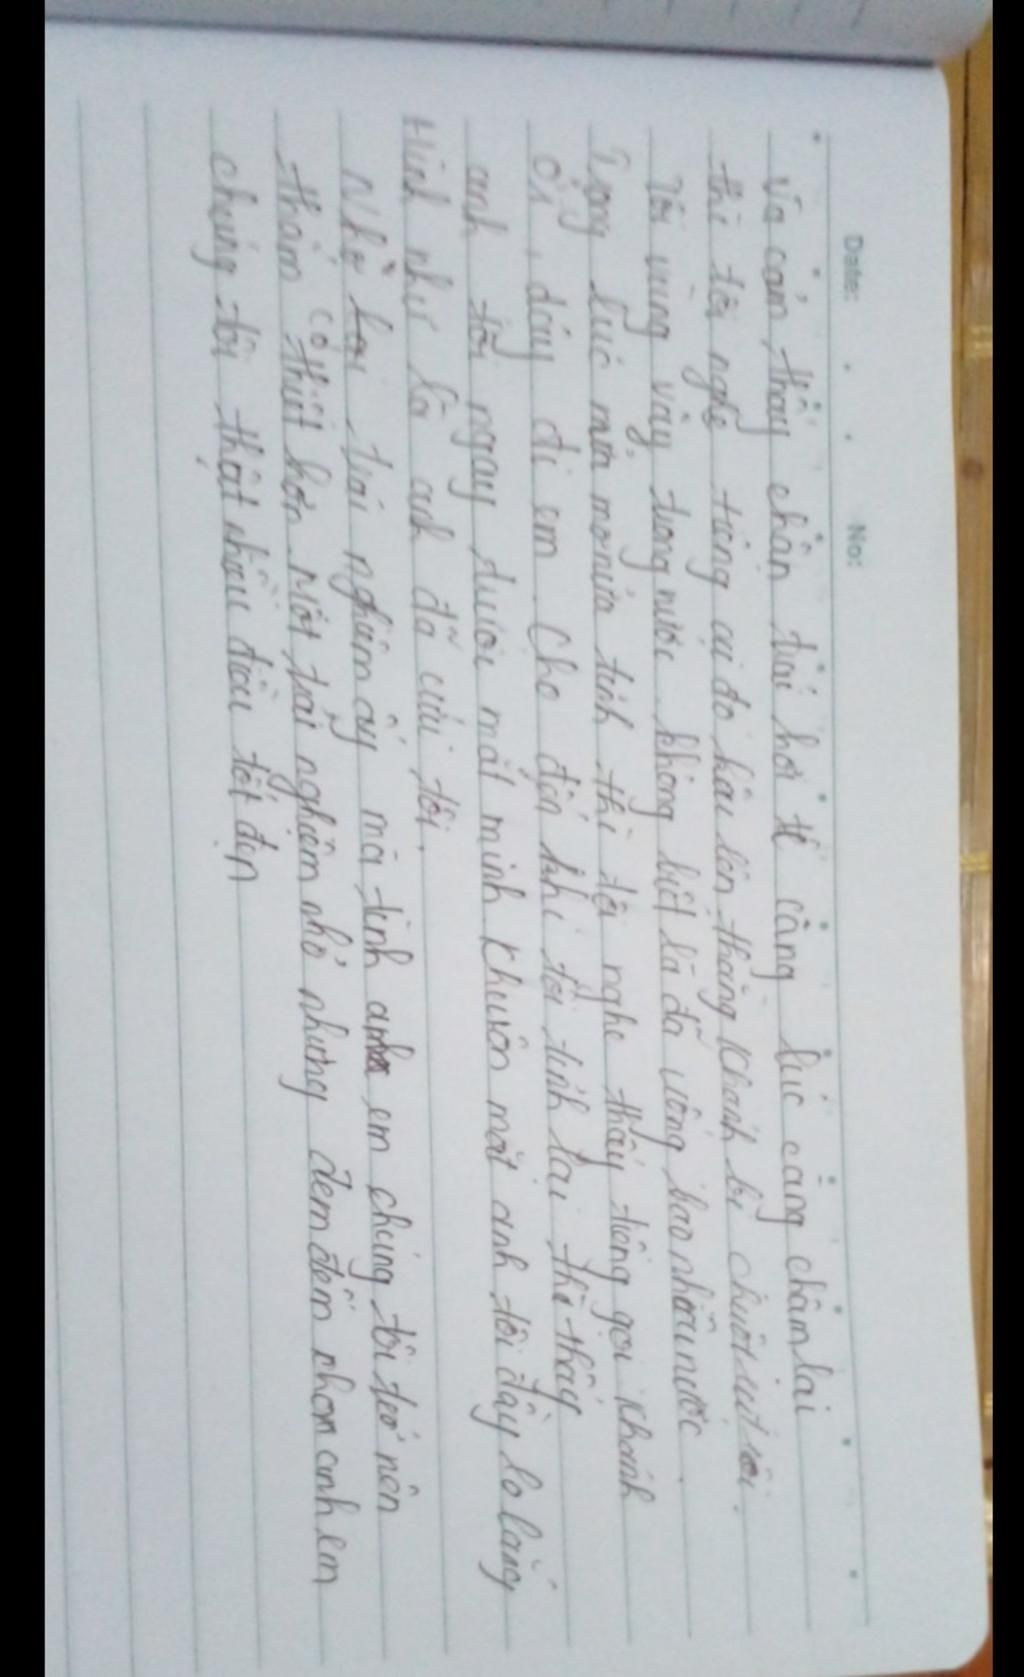 Date: No:
và cảm thấy chân trái hơi tê càng lúc càng chậm lại
thì tôi nghe tiếng ai đó kêu lên thằng Khánh bị chuột rút rồi.
Tôi vùng vẫy trong nước không biết là đã uống bao nhiêu nước.
Trong lúc mơ nửa tỉnh thì tôi nghe thấy tiếng gọi Khánh
ơi, dậy đi em. Cho đến khi tôi tỉnh lại thì thấy
anh tôi ngay dưới mắt mình. Khuôn mặt anh tôi đầy lo lắng
Hình như là anh đã cứu tôi.
Nhờ trải nghiệm ấy mà tình anh em chúng tôi trở nên
thắm thiết hơn. Một trải nghiệm nhỏ nhưng đem đến cho anh em
chúng tôi thật nhiều điều tốt đẹp